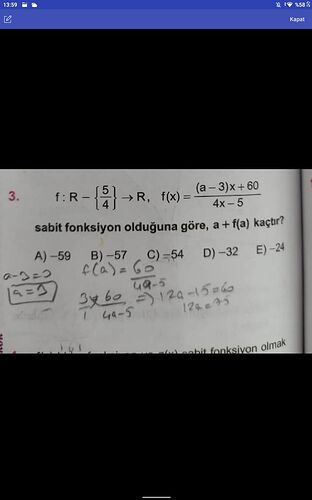 13:59 %58
Kapat
3. f : R − {5/4} → R, f(x) = (a − 3)x + 60 / 4x − 5
sabit fonksiyon olduğuna göre, a + f(a) kaçtır?
A) −59 B) −57 C) −54 D) −32 E) −24
a-3=0
a=3
f(a) = 60 / 4a-5
3/1 60/4a-5 => 12a-15=60
12a=75
sabit fonksiyon olmak